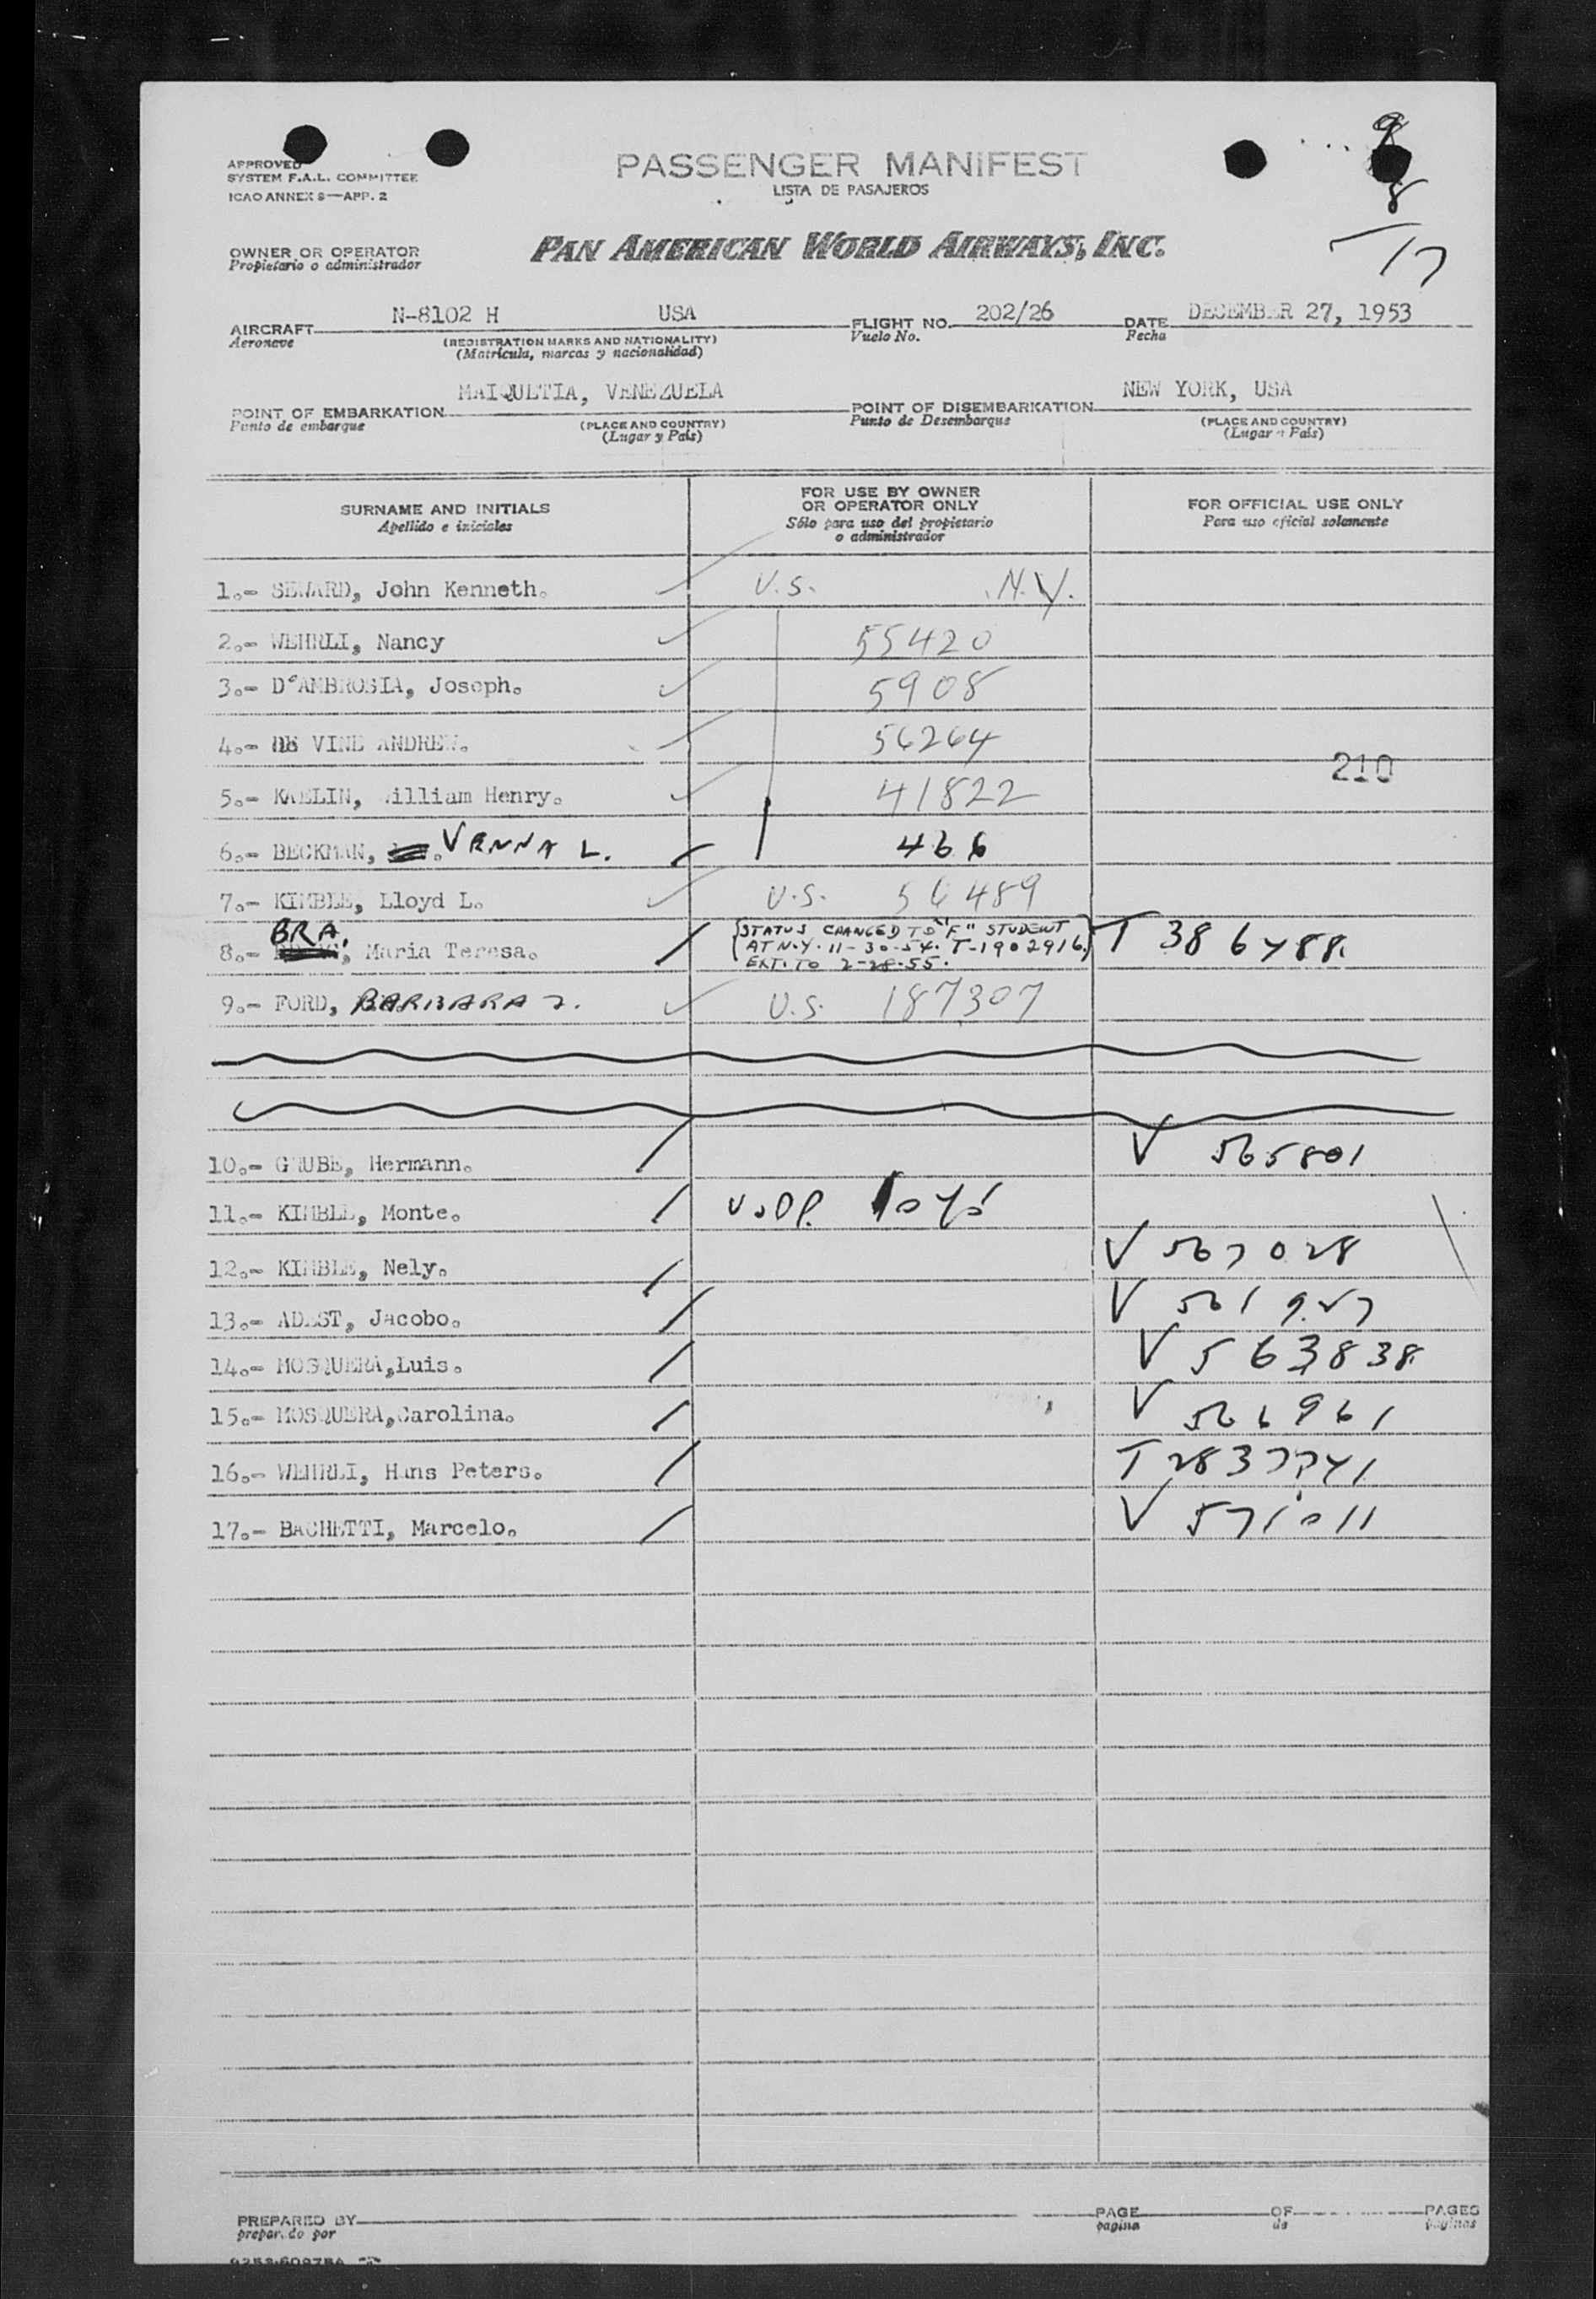 APPROVED
SYSTEM F.A.L. COMMITTEE
ICAO ANNEX 9—APP. 2
PASSENGER MANIFEST
LISTA DE PASAJEROS
9
8
17
OWNER OR OPERATOR
Propietario o administrador
PAN AMERICAN WORLD AIRWAYS, INC.
AIRCRAFT N-8102 H USA FLIGHT NO. 202/26 DATE DECEMBER 27, 1953
Aeronave (REGISTRATION MARKS AND NATIONALITY) Vuelo No. Fecha
(Matrícula, marcas y nacionalidad)
POINT OF EMBARKATION MAIQUETIA, VENEZUELA POINT OF DISEMBARKATION NEW YORK, USA
Punto de embarque (PLACE AND COUNTRY) Punto de Desembarque (PLACE AND COUNTRY)
(Lugar y País) (Lugar y País)
SURNAME AND INITIALS FOR USE BY OWNER OR OPERATOR ONLY FOR OFFICIAL USE ONLY
Apellido e iniciales Sólo para uso del propietario o administrador Para uso oficial solamente
1.- SEWARD, John Kenneth. U.S. N.Y.
2.- WEHRLI, Nancy 55420
3.- D'AMBROSIA, Joseph. 5908
4.- DE VINE ANDREW. 56264
210
5.- KAELIN, William Henry. 41822
6.- BECKMAN, VERNA L. 466
7.- KIMBLE, Lloyd L. U.S. 56489
8.- BRA, Maria Teresa. {STATUS CHANGED TO "F" STUDENT T 386488
AT N.Y. 11-30-54. T-1902916.}
EXT. TO 2-28-55.
9.- FORD, BARBARA J. U.S. 187307
10.- GRUBE, Hermann. V 565801
11.- KIMBLE, Monte.
12.- KIMBLE, Nely. V 567028
13.- ADEST, Jacobo. V 561
14.- MOSQUERA,Luis. V 563838
15.- MOSQUERA,Carolina. V 566961
16.- WEHRLI, Hans Peters.
17.- BACHETTI, Marcelo. V 571011
PREPARED BY PAGE OF PAGES
preparado por pagina de paginas